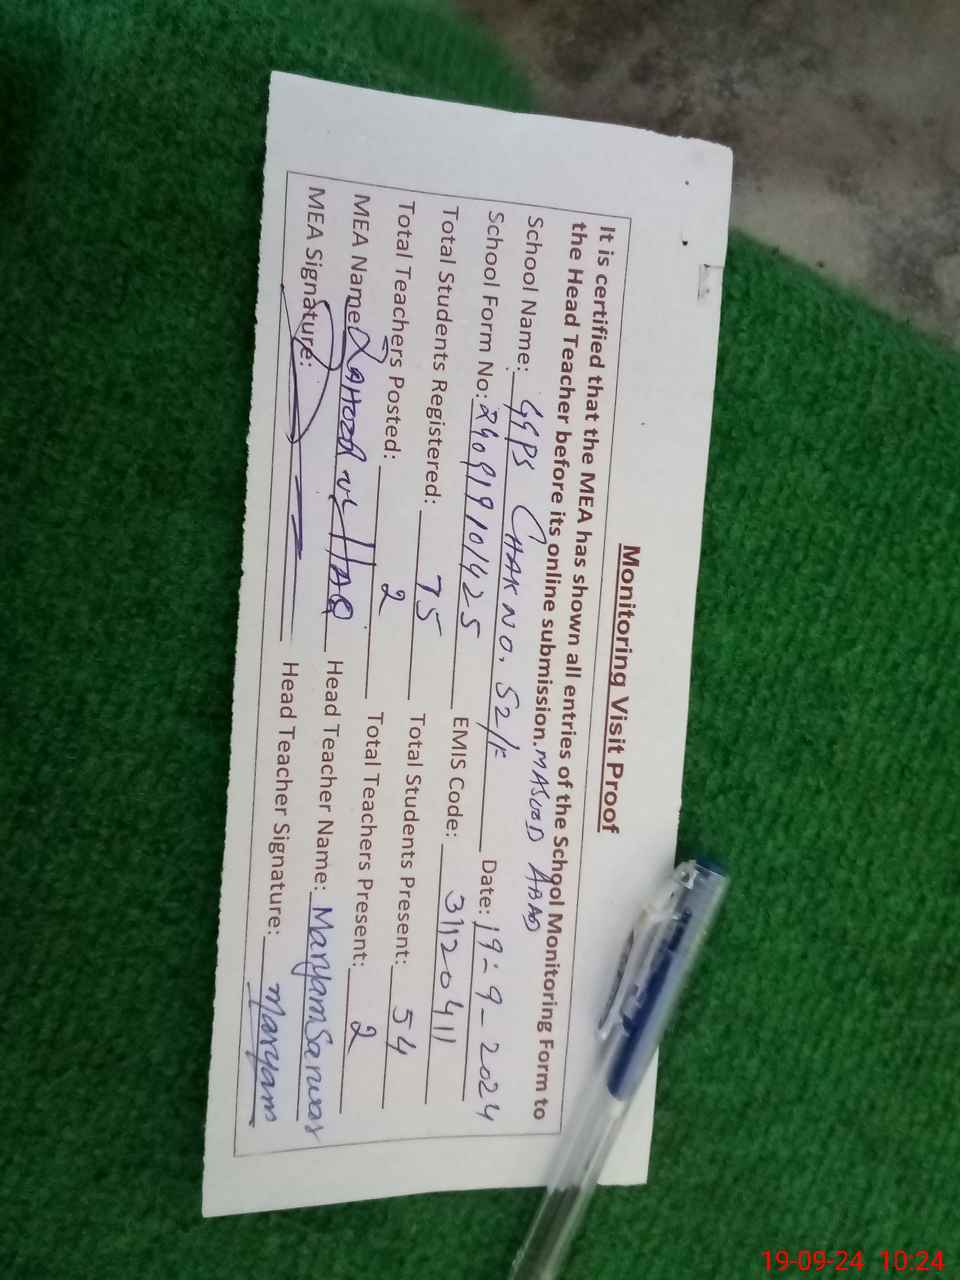 Monitoring Visit Proof
It is certified that the MEA has shown all entries of the School Monitoring Form to
the Head Teacher before its online submission. MASOOD ABAD
School Name: GGPS CHAK NO. 52/ Date: 19-9-2024
School Form No: 240919101425 EMIS Code: 31120411
Total Students Registered: 75 Total Students Present: 54
Total Teachers Posted: 2 Total Teachers Present: 2
MEA Name: ul HAQ Head Teacher Name: Maryam Sarwar
MEA Signature: Head Teacher Signature: Maryam
19-09-24 10:24